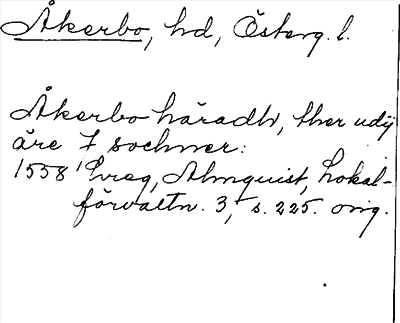 Åkerbo, hd, Österg. l.
Åkerbo häradh, ther udij
äre 7 sochner:
1558 Almquist, Lokal-
förvaltn. 3, s. 225. orig.